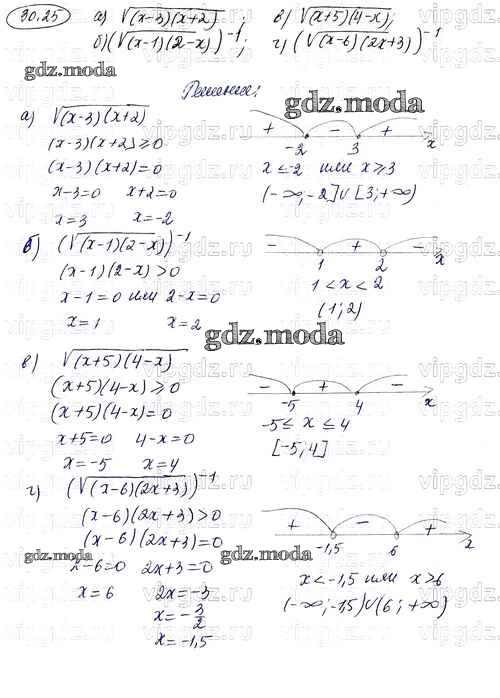 30.25 а) √(x-3)(x+2); в) √(x+5)(4-x);
б) (√(x-1)(2-x))⁻¹; г) (√(x-6)(2x+3))⁻¹
gdz.moda
Решение:
gdz.moda
а) √(x-3)(x+2)
(x-3)(x+2)≥0
(x-3)(x+2)=0
x-3=0 x+2=0
x=3 x=-2
+ - +
-2 3 x
x≤-2 или x≥3
(-∞;-2]∪[3;+∞)
б) (√(x-1)(2-x))⁻¹
(x-1)(2-x)>0
x-1=0 или 2-x=0
x=1 x=2
- + -
1 2 x
1<x<2
(1;2)
gdz.moda
в) √(x+5)(4-x)
(x+5)(4-x)≥0
(x+5)(4-x)=0
x+5=0 4-x=0
x=-5 x=4
- + -
-5 4 x
-5≤x≤4
[-5;4]
г) (√(x-6)(2x+3))⁻¹
(x-6)(2x+3)>0
(x-6)(2x+3)=0
gdz.moda gdz.moda
x-6=0 2x+3=0
x=6 2x=-3
x=-3/2
x=-1,5
+ - +
-1,5 6 x
x<-1,5 или x>6
(-∞;-1,5)∪(6;+∞)
gdz.moda